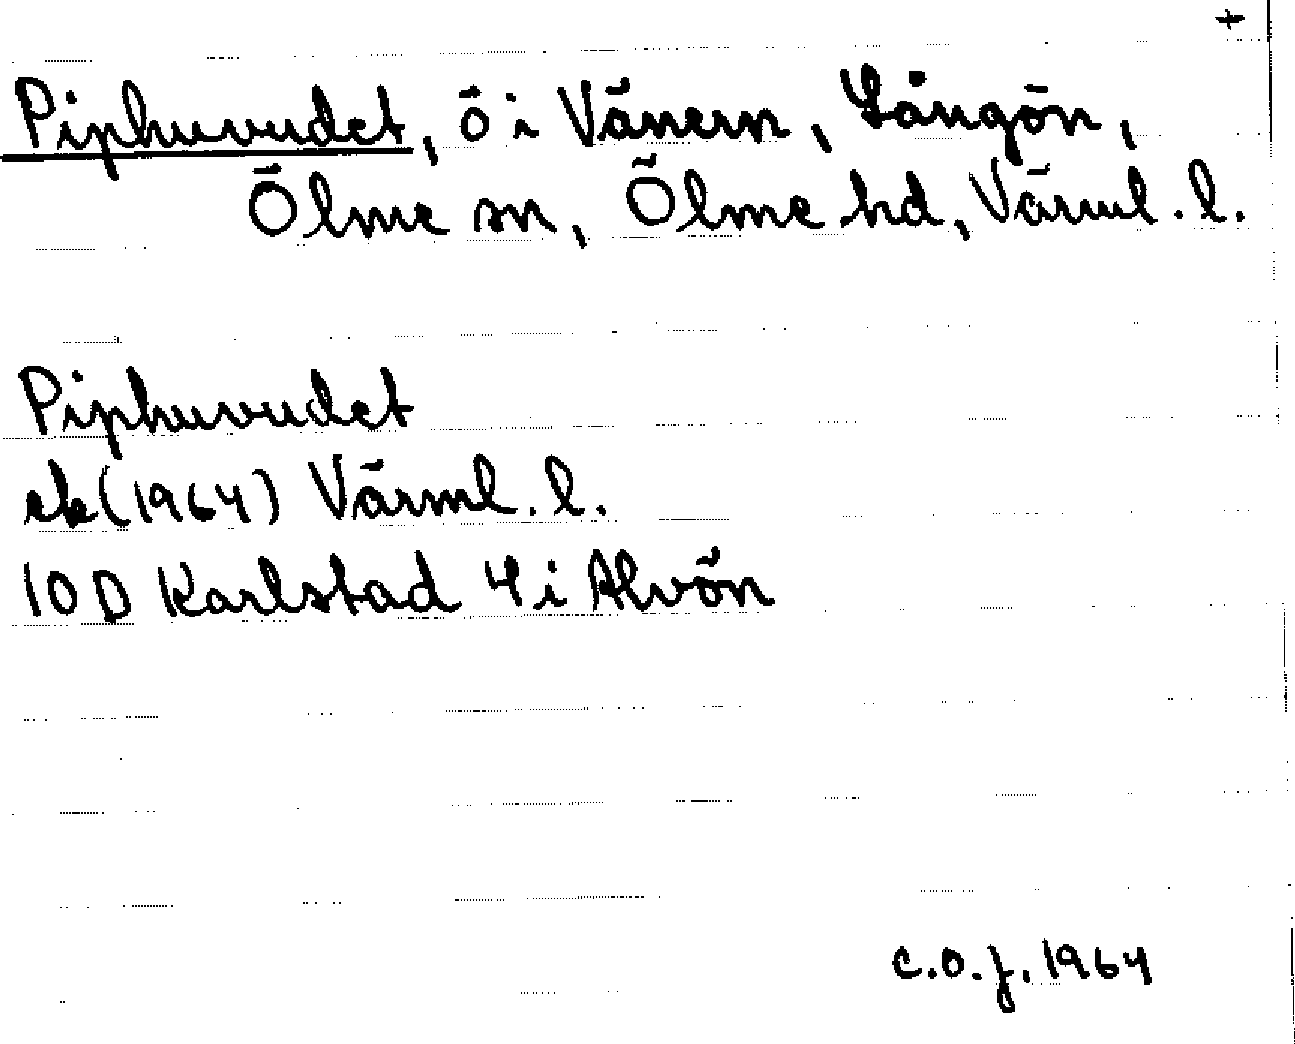 +
Piphuvudet, ö i Vänern, Långön,
Ölme sn, Ölme hd, Värml. l.
Piphuvudet
ek (1964) Värml. l.
10 D Karlstad 4 i Alvön
C.O.J. 1964